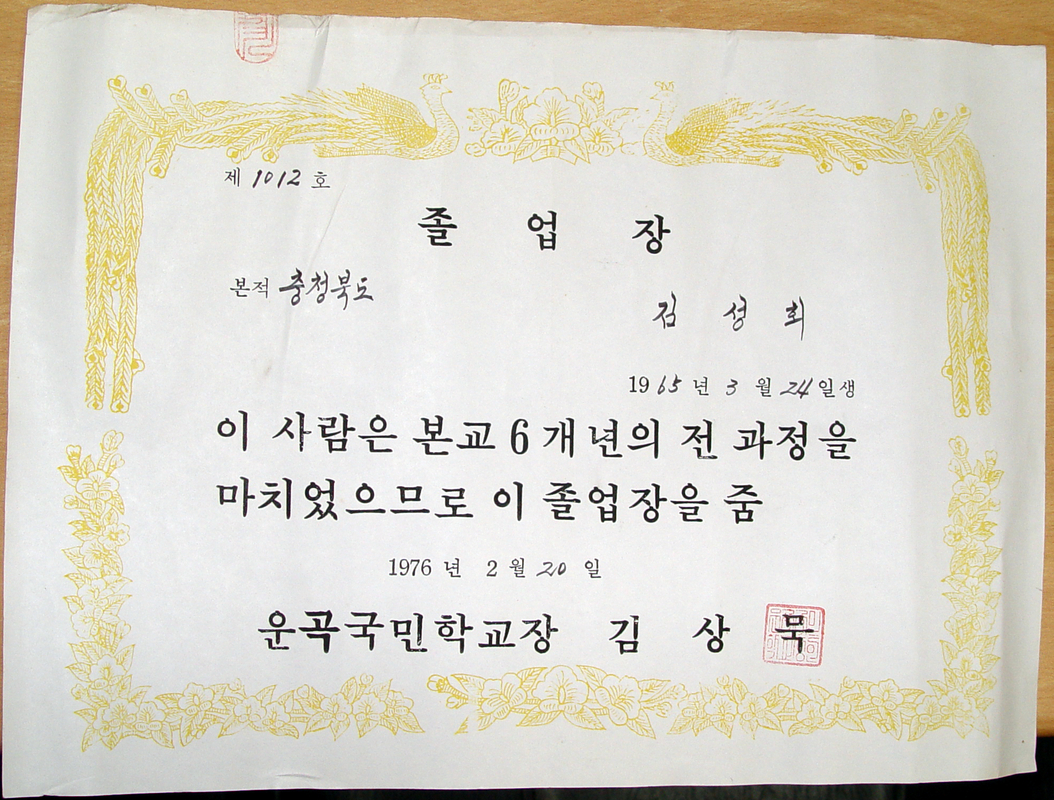 제 1012 호
졸 업 장
본적 충청북도
김 성 회
1965 년 3 월 24 일생
이 사람은 본교 6 개년의 전 과정을
마치었으므로 이 졸업장을 줌
1976 년 2 월 20 일
운곡국민학교장 김 상 묵